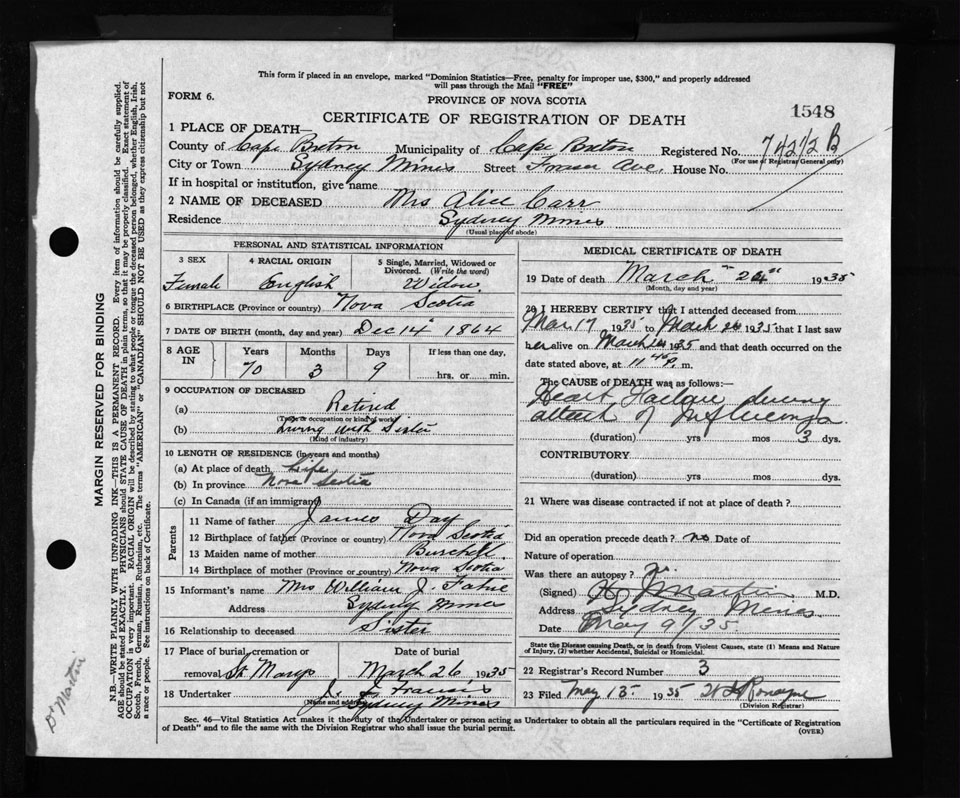 This form if placed in an envelope, marked "Dominion Statistics—Free, penalty for improper use, $300," and properly addressed
will pass through the Mail "FREE"
FORM 6.
PROVINCE OF NOVA SCOTIA
1548
CERTIFICATE OF REGISTRATION OF DEATH
1 PLACE OF DEATH—
County of Cape Breton Municipality of Cape Breton Registered No. 7421/2 B
(For use of Registrar General only)
City or Town Sydney Mines Street Ave. House No.
If in hospital or institution, give name
2 NAME OF DECEASED Mrs Alice Carr
Residence Sydney Mines
(Usual place of abode)
PERSONAL AND STATISTICAL INFORMATION
3 SEX
Female
4 RACIAL ORIGIN
English
5 Single, Married, Widowed or
Divorced. (Write the word)
Widow
6 BIRTHPLACE (Province or country) Nova Scotia
7 DATE OF BIRTH (month, day and year) Dec 14 1864
8 AGE IN
Years Months Days If less than one day,
70 3 9 hrs. or min.
9 OCCUPATION OF DECEASED
(a) Retired
(Trade or occupation or kind of work)
(b) Living with Sister
(Kind of industry)
10 LENGTH OF RESIDENCE (in years and months)
(a) At place of death Life
(b) In province Nova Scotia
(c) In Canada (if an immigrant)
Parents
11 Name of father James Day
12 Birthplace of father (Province or country) Nova Scotia
13 Maiden name of mother Burchell
14 Birthplace of mother (Province or country) Nova Scotia
15 Informant's name Mrs William J.
Address Sydney Mines
16 Relationship to deceased Sister
17 Place of burial, cremation or
removal St Marys
Date of burial
March 26 1935
18 Undertaker J. J. Francis
(Name and address) Sydney Mines
MEDICAL CERTIFICATE OF DEATH
19 Date of death March 24 1935
(Month, day and year)
20 I HEREBY CERTIFY that I attended deceased from
Mar 17 1935 to March 24 1935 that I last saw
her alive on March 1935 and that death occurred on the
date stated above, at 11 45 P. m.
The CAUSE of DEATH was as follows:—
Heart Failure during
attack of Influenza
(duration) yrs mos 3 dys.
CONTRIBUTORY
(duration) yrs mos dys.
21 Where was disease contracted if not at place of death?
Did an operation precede death? no Date of
Nature of operation
Was there an autopsy?
(Signed) Martin M.D.
Address Sydney Mines
Date May 9/35
State the Disease causing Death, or in death from Violent Causes, state (1) Means and Nature
of Injury, (?) whether Accidental, Suicidal or Homicidal.
22 Registrar's Record Number 3
23 Filed May 15 1935
(Division Registrar)
Sec. 46—Vital Statistics Act makes it the duty of the Undertaker or person acting as Undertaker to obtain all the particulars required in the "Certificate of Registration
of Death" and to file the same with the Division Registrar who shall issue the burial permit.
(OVER)
MARGIN RESERVED FOR BINDING
N.B.—WRITE PLAINLY WITH UNFADING INK—THIS IS A PERMANENT RECORD. Every item of information should be carefully supplied.
AGE should be stated EXACTLY. PHYSICIANS should STATE CAUSE OF DEATH in plain terms, so that it may be properly classified. Exact statement of
OCCUPATION is very important. RACIAL ORIGIN will be described by stating to what people or tongue the deceased person belonged, whether English, Irish,
Scotch, French, German, Russian, Ruthenian, etc. The terms "AMERICAN" or "CANADIAN" SHOULD NOT BE USED as they express citizenship but not
a race or people. See instructions on back of Certificate.
Dr Martin